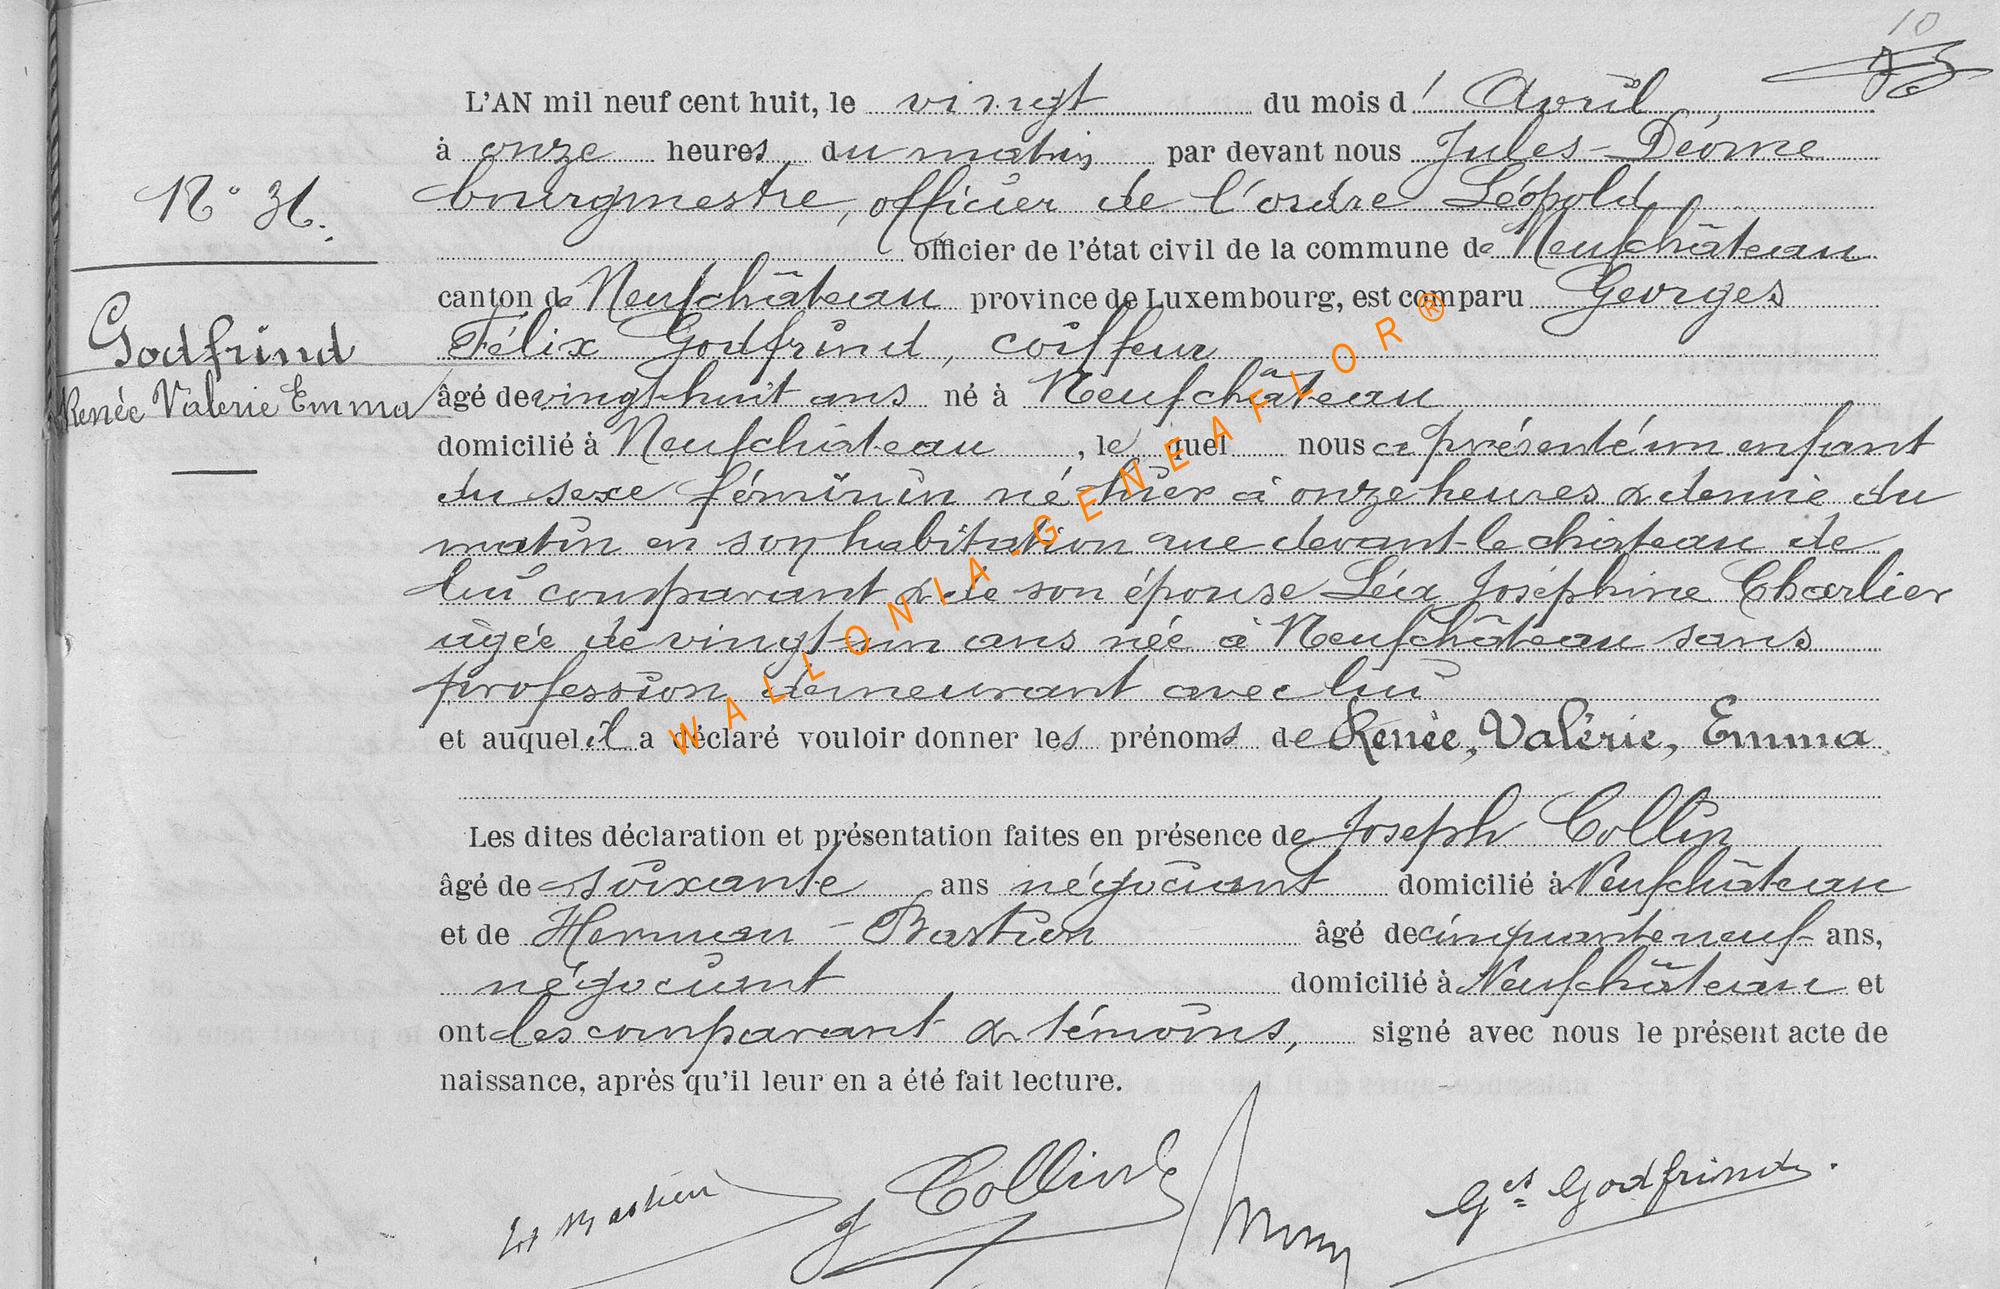 10
L'AN mil neuf cent huit, le vingt du mois d' Avril
à onze heures du matin par devant nous Jules Déome
N° 31.
bourgmestre, officier de l'ordre Léopold
officier de l'état civil de la commune de Neufchâteau
canton de Neufchâteau province de Luxembourg, est comparu Georges
Godfrind
Félix Godfrind, coiffeur
Renée Valerie Emma
âgé de vingt-huit ans né à Neufchâteau
domicilié à Neufchâteau, le quel nous a présenté un enfant
du sexe féminin né hier à onze heures & demie du
matin en son habitation rue devant-le château de
lui comparant & de son épouse Léa Joséphine Charlier
agée de vingt-un ans née à Neufchâteau sans
profession demeurant avec lui
et auquel il a déclaré vouloir donner les prénoms de Renée, Valérie, Emma
Les dites déclaration et présentation faites en présence de Joseph Collin
âgé de soixante ans négociant domicilié à Neufchâteau
et de Herman Bastien âgé de cinquante neuf ans,
négociant domicilié à Neufchâteau et
ont les comparant & témoins, signé avec nous le présent acte de
naissance, après qu'il leur en a été fait lecture.
H Bastien J Collin Ges Godfrind.
WALLONIA-GENEAFLOR®